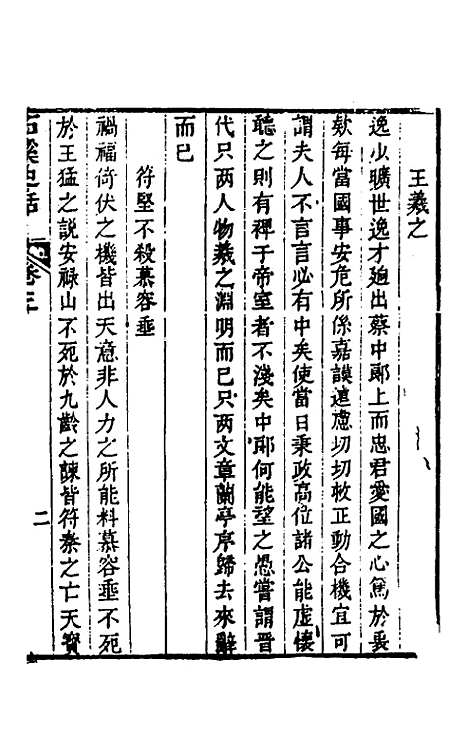 王羲之
逸少曠世逸才逈出蔡中郞上而忠君愛國之心篤於
欵每當國事安危所係嘉謨遠慮切切救正動合機宜可
謂夫人不言言必有中矣使當日秉政高位諸公能虛懐
聽之則有禆于帝室者不淺矣中郞何能望之愚嘗謂晋
代只两人物羲之淵明而已只两文章蘭亭序歸去來辭
而已
符堅不殺慕容垂
禍福倚伏之機皆出天意非人力之所能料慕容垂不死
於王猛之説安祿山不死於九齡之諫皆符秦之亡天寳
石溪史話
卷三
二